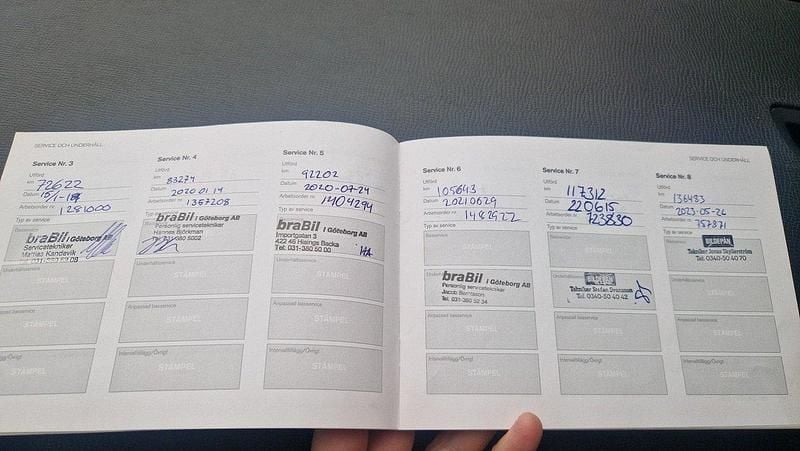 SERVICE OCH UNDERHÅLL
Service Nr. 3
Utförd
km 72622
Datum
Arbetsorder nr 1281000
Typ av service
braBil i Göteborg AB
Servicetekniker
Mattias Kandevik
Underhållsservice
STÄMPEL
Anpassad basservice
STÄMPEL
Intervalltillägg/Övrigt
STÄMPEL
Service Nr. 4
Utförd
km 83274
Datum 2020 01 14
Arbetsorder nr 1357208
Typ av service
braBil i Göteborg AB
Personlig servicetekniker
Hannes Björkman
031-380 5002
Underhållsservice
STÄMPEL
Anpassad basservice
STÄMPEL
Intervalltillägg/Övrigt
STÄMPEL
Service Nr. 5
Utförd
km 92202
Datum 2020-07-24
Arbetsorder nr 1404294
Typ av service
braBil i Göteborg AB
Importgatan 3
422 46 Hisings Backa
Tel. 031-380 50 00
Underhållsservice
STÄMPEL
Anpassad basservice
STÄMPEL
Intervalltillägg/Övrigt
STÄMPEL
SERVICE OCH UNDERHÅLL
Service Nr. 6
Utförd
km 105643
Datum 20210629
Arbetsorder nr 1482922
Typ av service
Basservice
STÄMPEL
braBil i Göteborg AB
Personlig servicetekniker
Jacob Berntsson
Tel. 031-380 52 34
Anpassad basservice
STÄMPEL
Intervalltillägg/Övrigt
STÄMPEL
Service Nr. 7
Utförd
km 117312
Datum 220615
Arbetsorder nr 723830
Typ av service
Basservice
STÄMPEL
Underhållsservice
Tekniker Stefan
Tel. 0340-50 40 42
Anpassad basservice
STÄMPEL
Intervalltillägg/Övrigt
STÄMPEL
Service Nr. 8
Utförd
km 136483
Datum 2023-05-26
Arbetsorder nr 757871
Typ av service
Basservice
BILDEPÅN
Tekniker Jonas
Tel. 0340-50 40 70
Underhållsservice
STÄMPEL
Anpassad basservice
STÄMPEL
Intervalltillägg/Övrigt
STÄMPEL